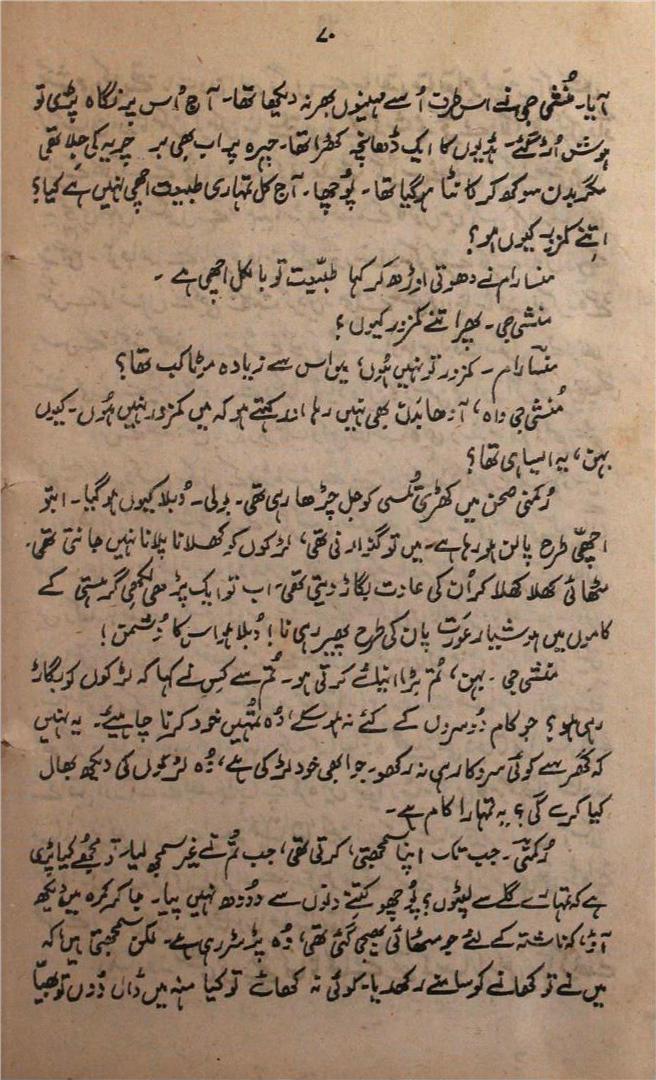 ۷۰
آیا۔ مُنشی جی نے اس طرف اُسے مہینوں بھر نہ دیکھا تھا۔ آج اُس پر نگاہ پڑی تو
ہوش اُڑ گئے۔ ہڈیوں کا ایک ڈھانچہ کھڑا تھا۔ چہرہ پر اب بھی بر چریہ کی جِلا تھی
مگر بدن سوکھ کر کانٹا ہو گیا تھا۔ پوُچھا۔ آج کل تمہاری طبیعت اچھی نہیں ہے کیا؟
اِتنے کمزور کیوں ہو؟
منسا رام نے دھوتی اوڑھ کر کہا طبیّعت تو بالکل اچھی ہے۔
منشی جی۔ پھر اتنے کمزور کیوں؟
منسّا رام۔ کمزور تو نہیں ہُوں، میں اس سے زیادہ موٹا کب تھا؟
مُنشی جی واہ، آدھا بدن بھی نہیں رہا، اور کہتے ہو کہ میں کمزور نہیں ہُوں۔ کیوں
بہن، یہ ایسا ہی تھا؟
رُکمنی صحن میں کھڑی تُلسی کو جل چڑھا رہی تھی۔ بولی۔ دُبلا کیوں ہو گیا۔ اب تو
اچھّی طرح پالن ہو رہا ہے۔ میں تو گنوارنی تھی، لڑکوں کو کھلانا پلانا نہیں جانتی تھی۔
مٹھائی کھلا کھلا کر اُن کی عادت بگاڑ دیتی تھی۔ اب تو ایک پڑھی لکھی گرہستی کے
کاموں میں ہوشیار عورت پان کی طرح پھیر رہی نا! دُبلا ہو اس کا دُشمن!
منشی جی۔ بہن، تُم بڑا انیائے کرتی ہو۔ تُم سے کِس نے کہا کہ لڑکوں کو بگاڑ
رہی ہو؟ جو کام دُوسروں کے کئے نہ ہو سکے، وُہ تمُہیں خود کرنا چاہیئے۔ یہ نہیں
کہ گھر سے کوئی سروکار ہی نہ رکھو۔ جو ابھی خود لڑکی ہے، وُہ لڑکوں کی دیکھ بھال
کیا کرے گی؟ یہ تمہارا کام ہے۔
رُکمنی۔ جب تک اپنا سمجھتی، کرتی تھی، جب تُم نے غیر سمجھ لیا۔ تو مجھے کیا پڑی
ہے کہ تمہارے گلے سے لپٹوں؟ پُوچھو کِتنے دِنوں سے دُودھ نہیں پیا۔ جا کر کمرہ میں دیکھ
آؤ، کہ ناشتہ کے لئے جو مٹھائی بھیجی گئی تھی، وُہ پڑی سڑ رہی ہے۔ لکن سمجھتی ہیں کہ
میں نے تو کھانے کو سامنے رکھدیا۔ کوئی نہ کھائے تو کیا منہ میں ڈال دوُں تو بھیّا